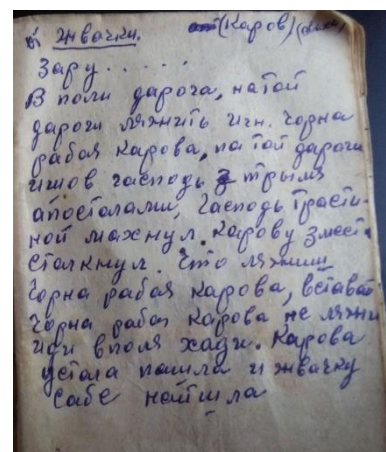 жвачки. (Каров)
Зару......
В поли дарога, на той
дароги ляжить ичн. чорна
рабая карова, па той дароги
ишов гасподь з трымя
апосталами, Гасподь трасти-
ной махнул. Карову з мест
столкнул. Что ляжиш
Чорна рабая карова, вставай
Чорна рабоя карова не ляжи
иди в поля хади. Карова
устала пашла и жвачку
сабе найшла